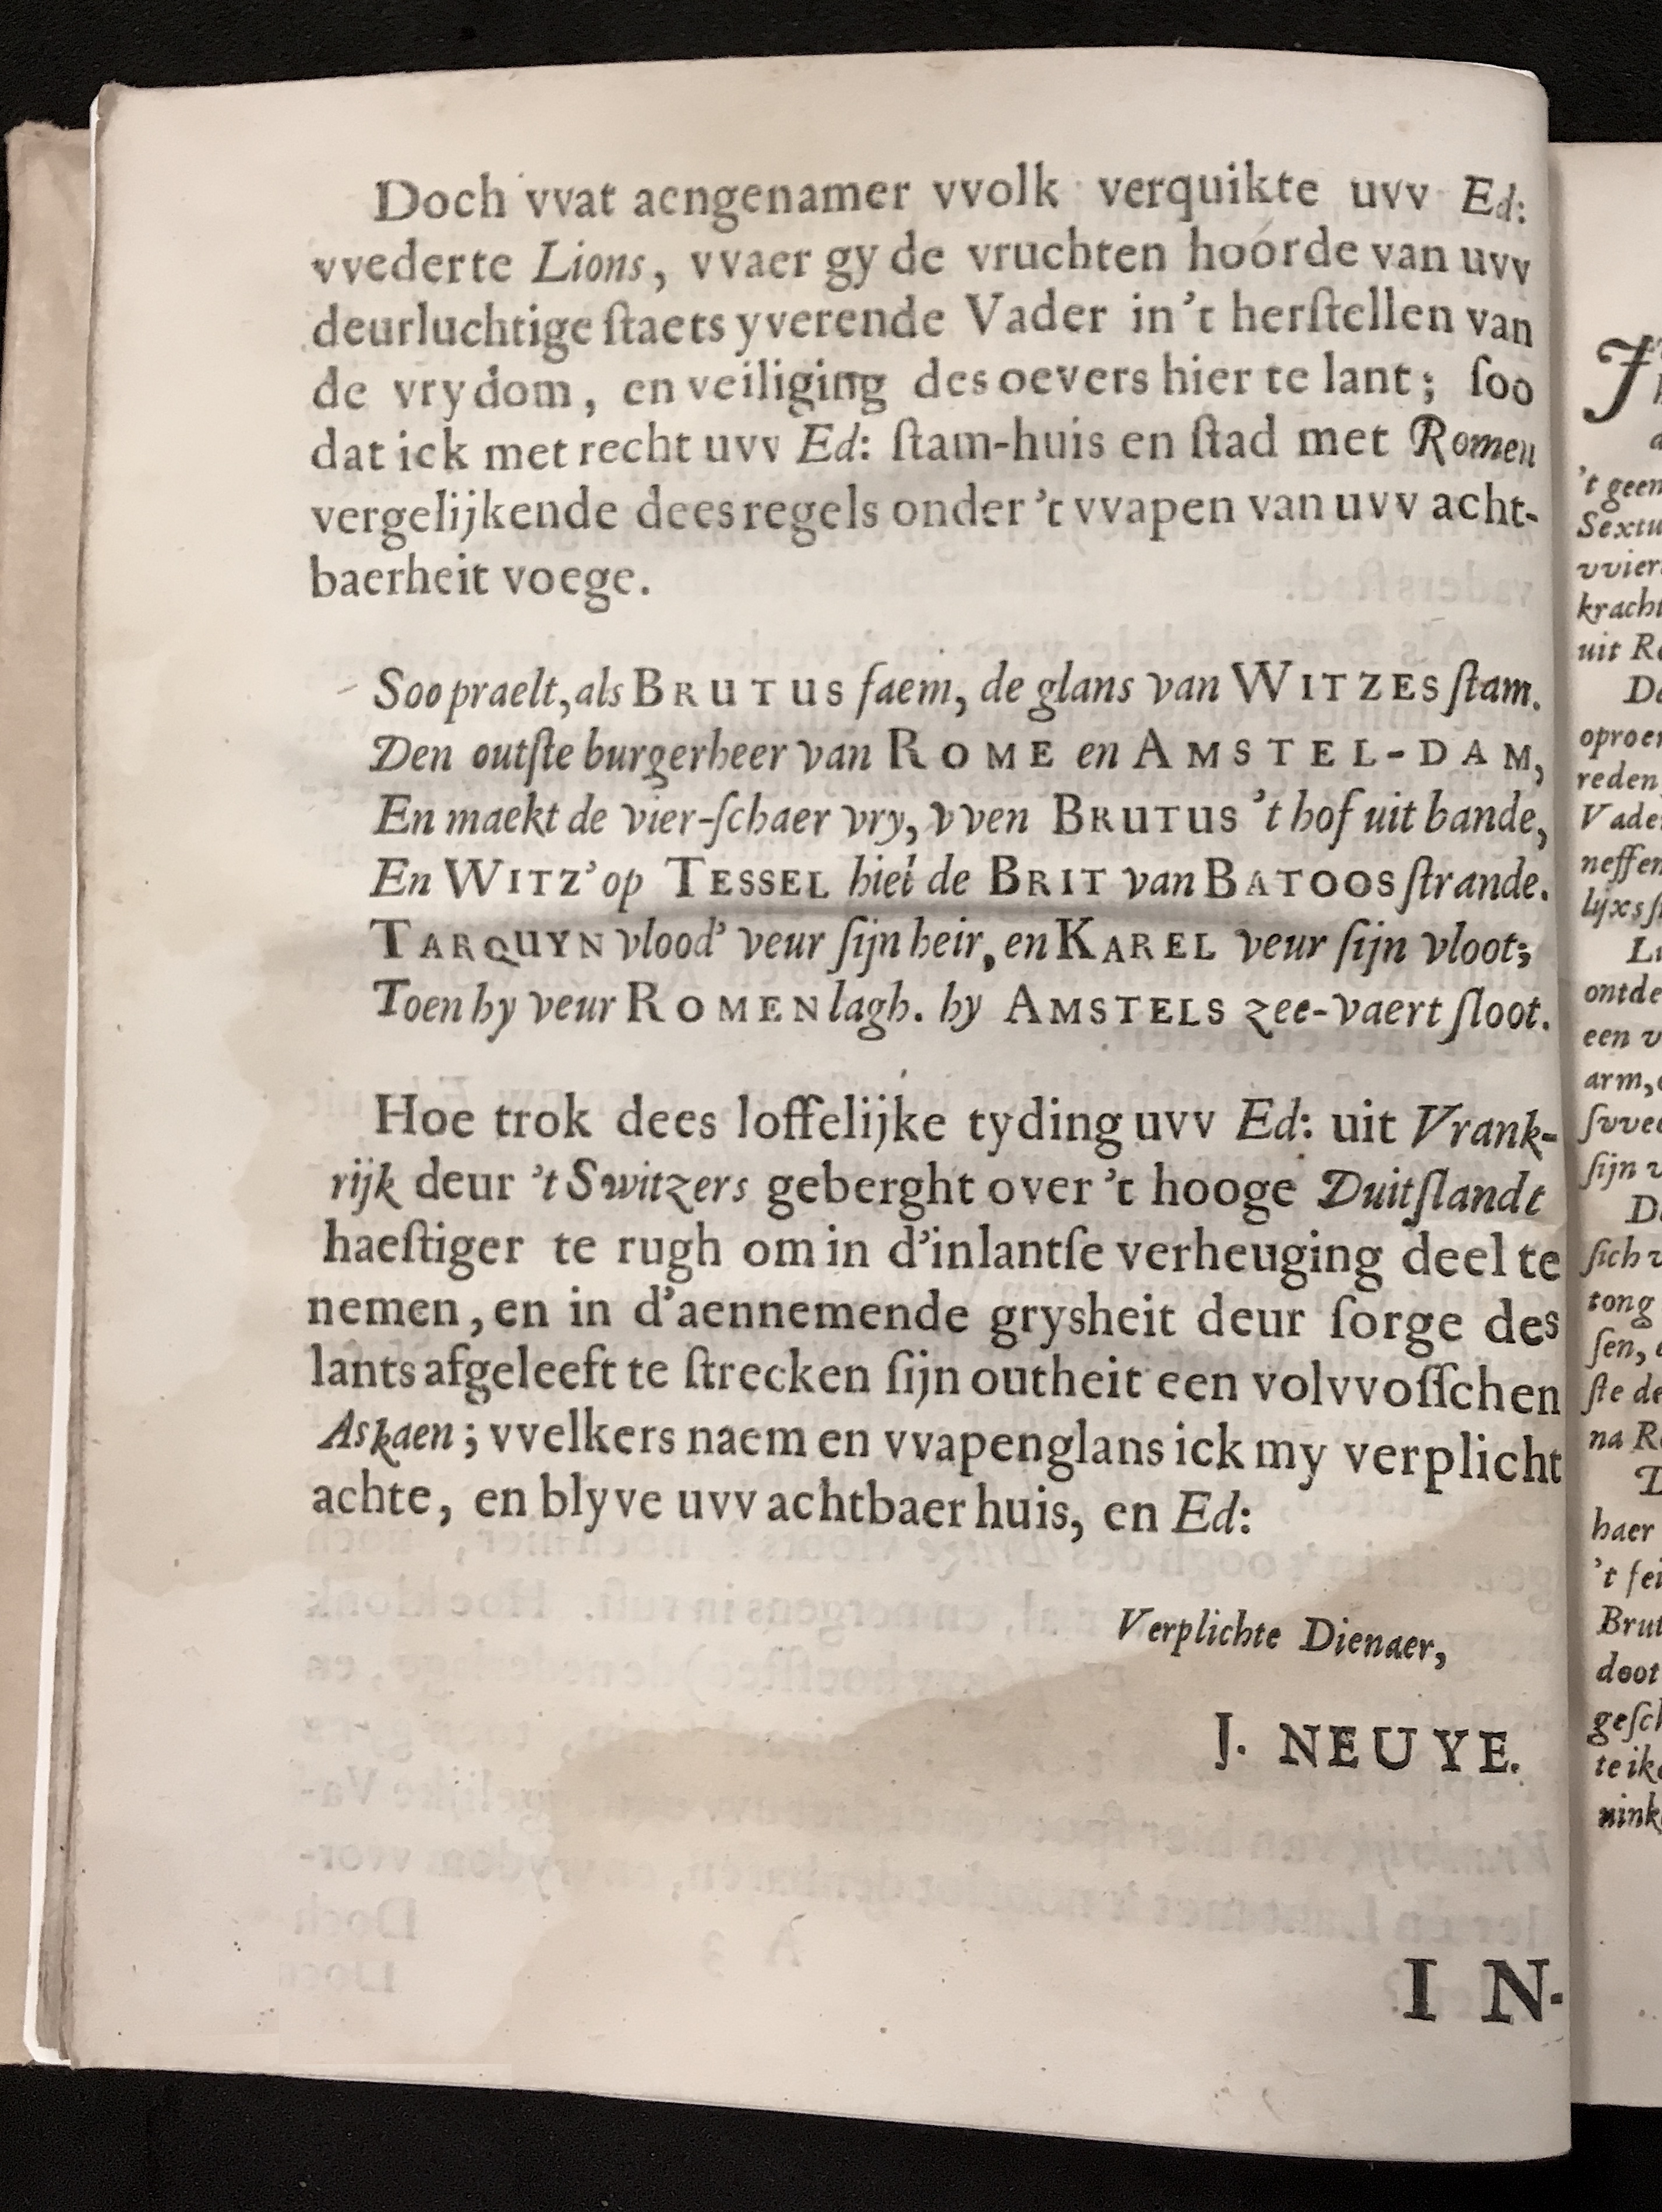 Doch vvat aengenamer vvolk verquikte uvv Ed:
vvederte Lions, vvaer gy de vruchten hoorde van uvv
deurluchtige ſtaets yverende Vader in't herſtellen van
de vrydom, en veiliging des oevers hier te lant; ſoo
dat ick met recht uvv Ed: ſtam-huis en ſtad met Romen
vergelijkende dees regels onder 't vvapen van uvv acht-
baerheit voege.
Soo praelt, als BRUTUS faem, de glans van WITZES ſtam.
Den outſte burgerheer van ROME en AMSTEL-DAM,
En maekt de vier-ſchaer vry, vven BRUTUS 't hof uit bande,
En WITZ' op TESSEL hiel de BRIT van BATOOS ſtrande.
TARQUYN vlood' veur ſijn heir, en KAREL veur ſijn vloot;
Toen hy veur ROMEN lagh. hy AMSTELS zee-vaert ſloot.
Hoe trok dees loffelijke tyding uvv Ed: uit Vrank-
rijk deur 't Switzers geberght over 't hooge Duitſlandt
haeſtiger te rugh om in d'inlantſe verheuging deel te
nemen, en in d'aennemende grysheit deur ſorge des
lants afgeleeft te ſtrecken ſijn outheit een volvvoſſchen
Askaen; vvelkers naem en vvapenglans ick my verplicht
achte, en blyve uvv achtbaer huis, en Ed:
Verplichte Dienaer,
J. NEUYE.
IN-
't geen
kracht
uit
een
arm,
tong
ſte de
na
haer
't
doot